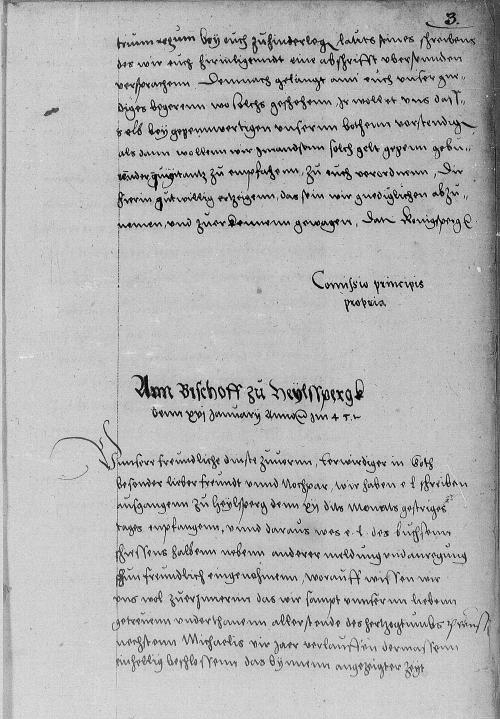 3.
trium regum bey euch zuhinderlegen lauts seines schreibens
des wir euch hirinligendt eine abschrifft ubersanden
versprochenn Demnach gelangt ann euch unser gne=
diges begerenn wo solchs geschehenn Jr wollet uns das=
selb bey gegennwertigen unsernn bothenn vorstendigen
als dann wollenn wir Jmandsenn solch gelt gegenn gebu=
render quitantz zu empfahenn, zu euch verordnenn, Die
hierin gutwillig ertzeigenn, das sein wir gnediglichen abzu=
nemen, und zuerkennenn gewogen, Dan Konigsperg
Comissio principis
propria
Ann Bischoff zu Heylsspergk
denn xxj January Anno Jm 4
Unnsere freundliche dinste zuvornn, Eerwirdiger in Goth
besonder lieber freundt unnd Nochpar, wir haben e l schreiben
ausgangenn zu Heylsperg denn xij das Monats gestriges
tages empfangenn, unnd daraus wes e. l. des buchsenn
schiessens halbenn nebenn anderer meldung und anregung
thun freundlich eingenohmenn, worauff wissen wir
uns wol zuerjnnernn das wir sampt unnsernn liebenn
getreuenn underthanenn allerstende des hertzogtumbs Preussen
nechstenn Michaelis vir Jaer verlauffen dermassenn
einhellig beschlossenn das bynnenn angezeigter Zeyt